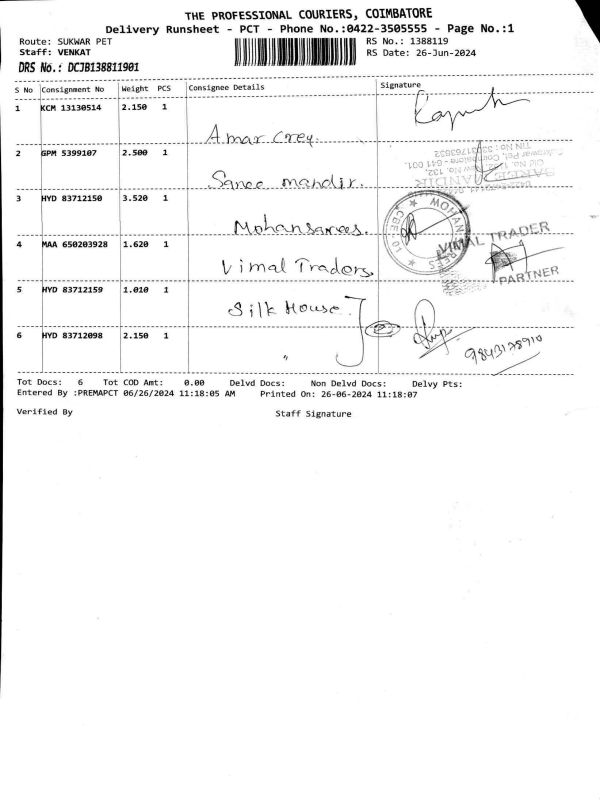 THE PROFESSIONAL COURIERS, COIMBATORE
Delivery Runsheet - PCT - Phone No.:0422-3505555 - Page No.:1
Route: SUKWAR PET RS No.: 1388119
Staff: VENKAT RS Date: 26-Jun-2024
DRS No.: DCJB138811901
S No Consignment No Weight PCS Consignee Details Signature
1 KCM 13130514 2.150 1
Amar Crey.
2 GPM 5399107 2.500 1
Saree mandir.
3 HYD 83712150 3.520 1
Mohansarees.
4 MAA 650203928 1.620 1
Vimal Traders.
VIMAL TRADER
PARTNER
5 HYD 83712159 1.010 1
Silk House
6 HYD 83712098 2.150 1
"
9843178910
Tot Docs: 6 Tot COD Amt: 0.00 Delvd Docs: Non Delvd Docs: Delvy Pts:
Entered By :PREMAPCT 06/26/2024 11:18:05 AM Printed On: 26-06-2024 11:18:07
Verified By Staff Signature